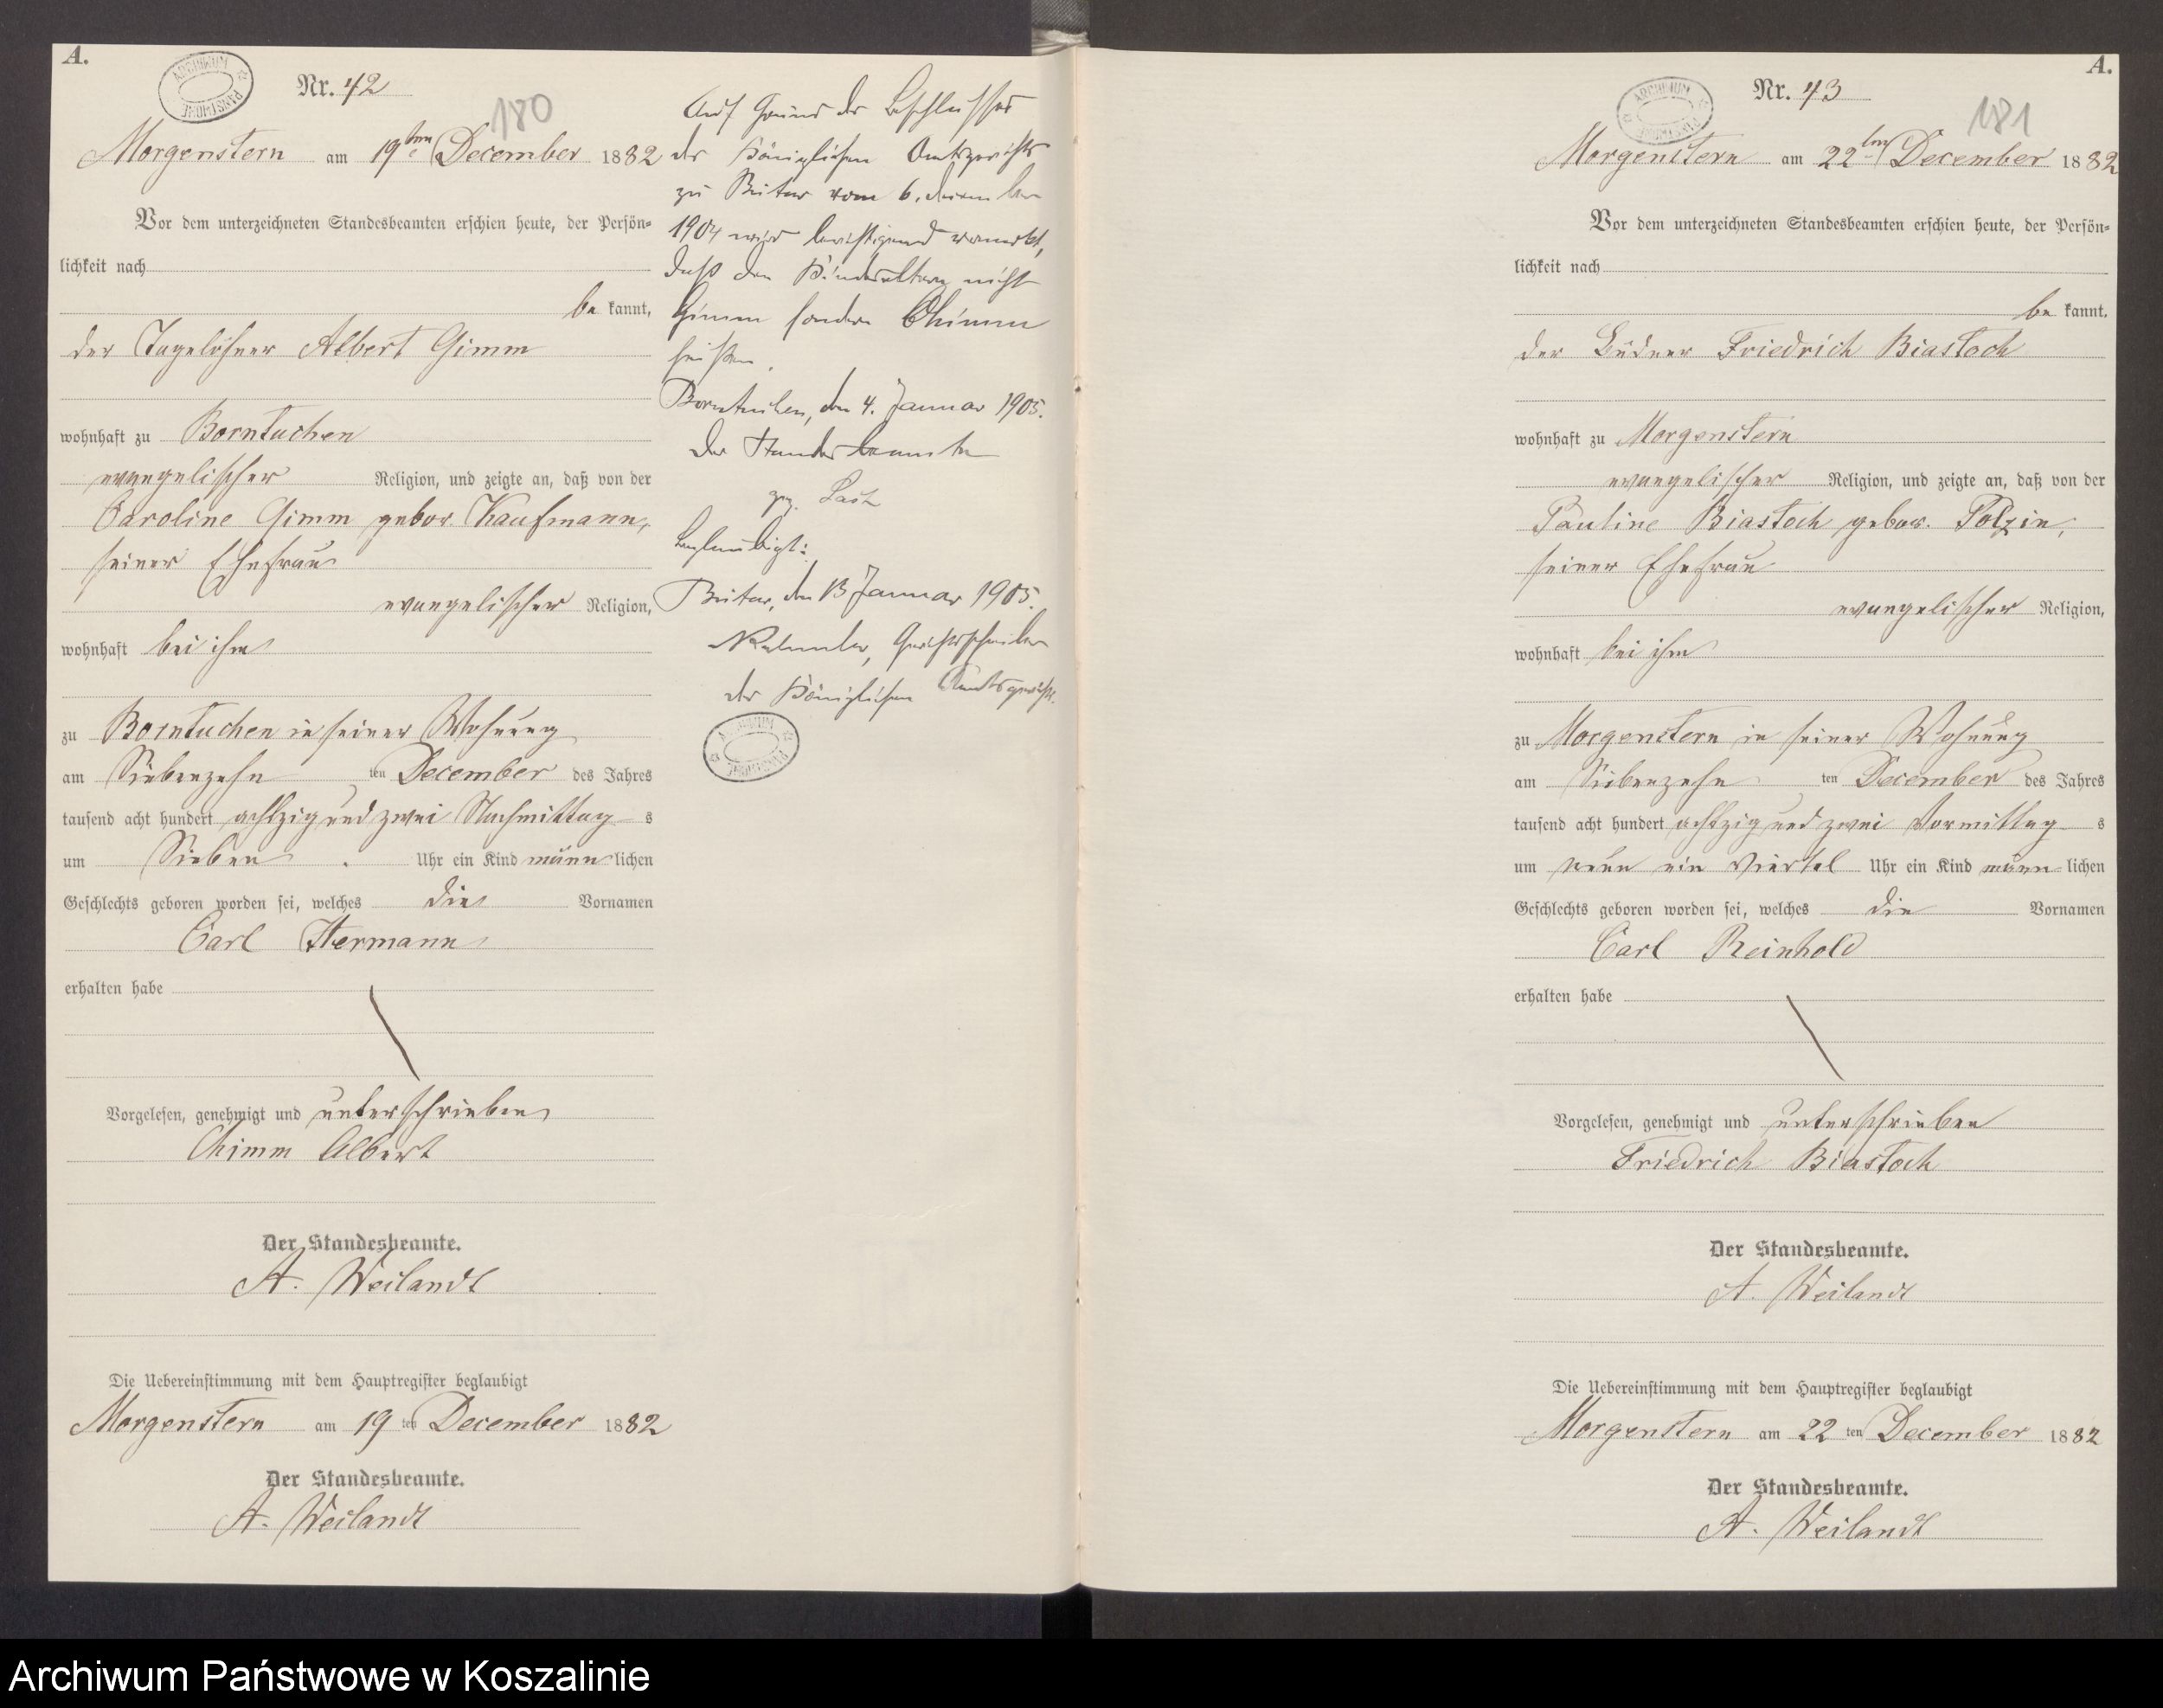 A.
Nr. 42
180
Morgenstern am 19ten December 1882
Vor dem unterzeichneten Standesbeamten erschien heute, der Persön-
lichkeit nach
be kannt,
der Tagelöhner Albert Gimm
wohnhaft zu Borntuchen
evangelischer Religion, und zeigte an, daß von der
Caroline Gimm gebor. Kaufmann,
seiner Ehefrau
evangelischer Religion,
wohnhaft bei ihm
zu Borntuchen in seiner Wohnung
am Siebenzehn ten December des Jahres
tausend acht hundert achtzig und zwei Nachmittag s
um Sieben Uhr ein Kind männ lichen
Geschlechts geboren worden sei, welches die Vornamen
Carl Hermann
erhalten habe
Vorgelesen, genehmigt und unterschrieben
Chimm Albert
Der Standesbeamte.
A. Weilandt
Die Uebereinstimmung mit dem Hauptregister beglaubigt
Morgenstern am 19 ten December 1882
Der Standesbeamte.
A. Weilandt
Auf Grund des Beschlusses
des Königlichen Amtsgerichts
zu Bütow vom 6. Dezember
1904 wird berichtigend vermerkt,
daß die Kindeseltern nicht
Gimm sondern Chimm
heißen.
Borntuchen, den 4. Januar 1905.
Der Standesbeamte
gez.
Beglaubigt:
Bütow, den 13 Januar 1905.
Gerichtsschreiber
des Königlichen Amtsgerichts.
ARCHIWUM PAŃSTWOWE
A.
Nr. 43
181
Morgenstern am 22ten December 1882
Vor dem unterzeichneten Standesbeamten erschien heute, der Persön-
lichkeit nach
be kannt,
der Büdner Friedrich Biastoch
wohnhaft zu Morgenstern
evangelischer Religion, und zeigte an, daß von der
Pauline Biastoch gebor. Polzin,
seiner Ehefrau
evangelischer Religion,
wohnhaft bei ihm
zu Morgenstern in seiner Wohnung
am Siebenzehn ten December des Jahres
tausend acht hundert achtzig und zwei Vormittag s
um neun ein viertel Uhr ein Kind männ lichen
Geschlechts geboren worden sei, welches die Vornamen
Carl Reinhold
erhalten habe
Vorgelesen, genehmigt und unterschrieben
Friedrich Biastoch
Der Standesbeamte.
A. Weilandt
Die Uebereinstimmung mit dem Hauptregister beglaubigt
Morgenstern am 22 ten December 1882
Der Standesbeamte.
A. Weilandt
Archiwum Państwowe w Koszalinie